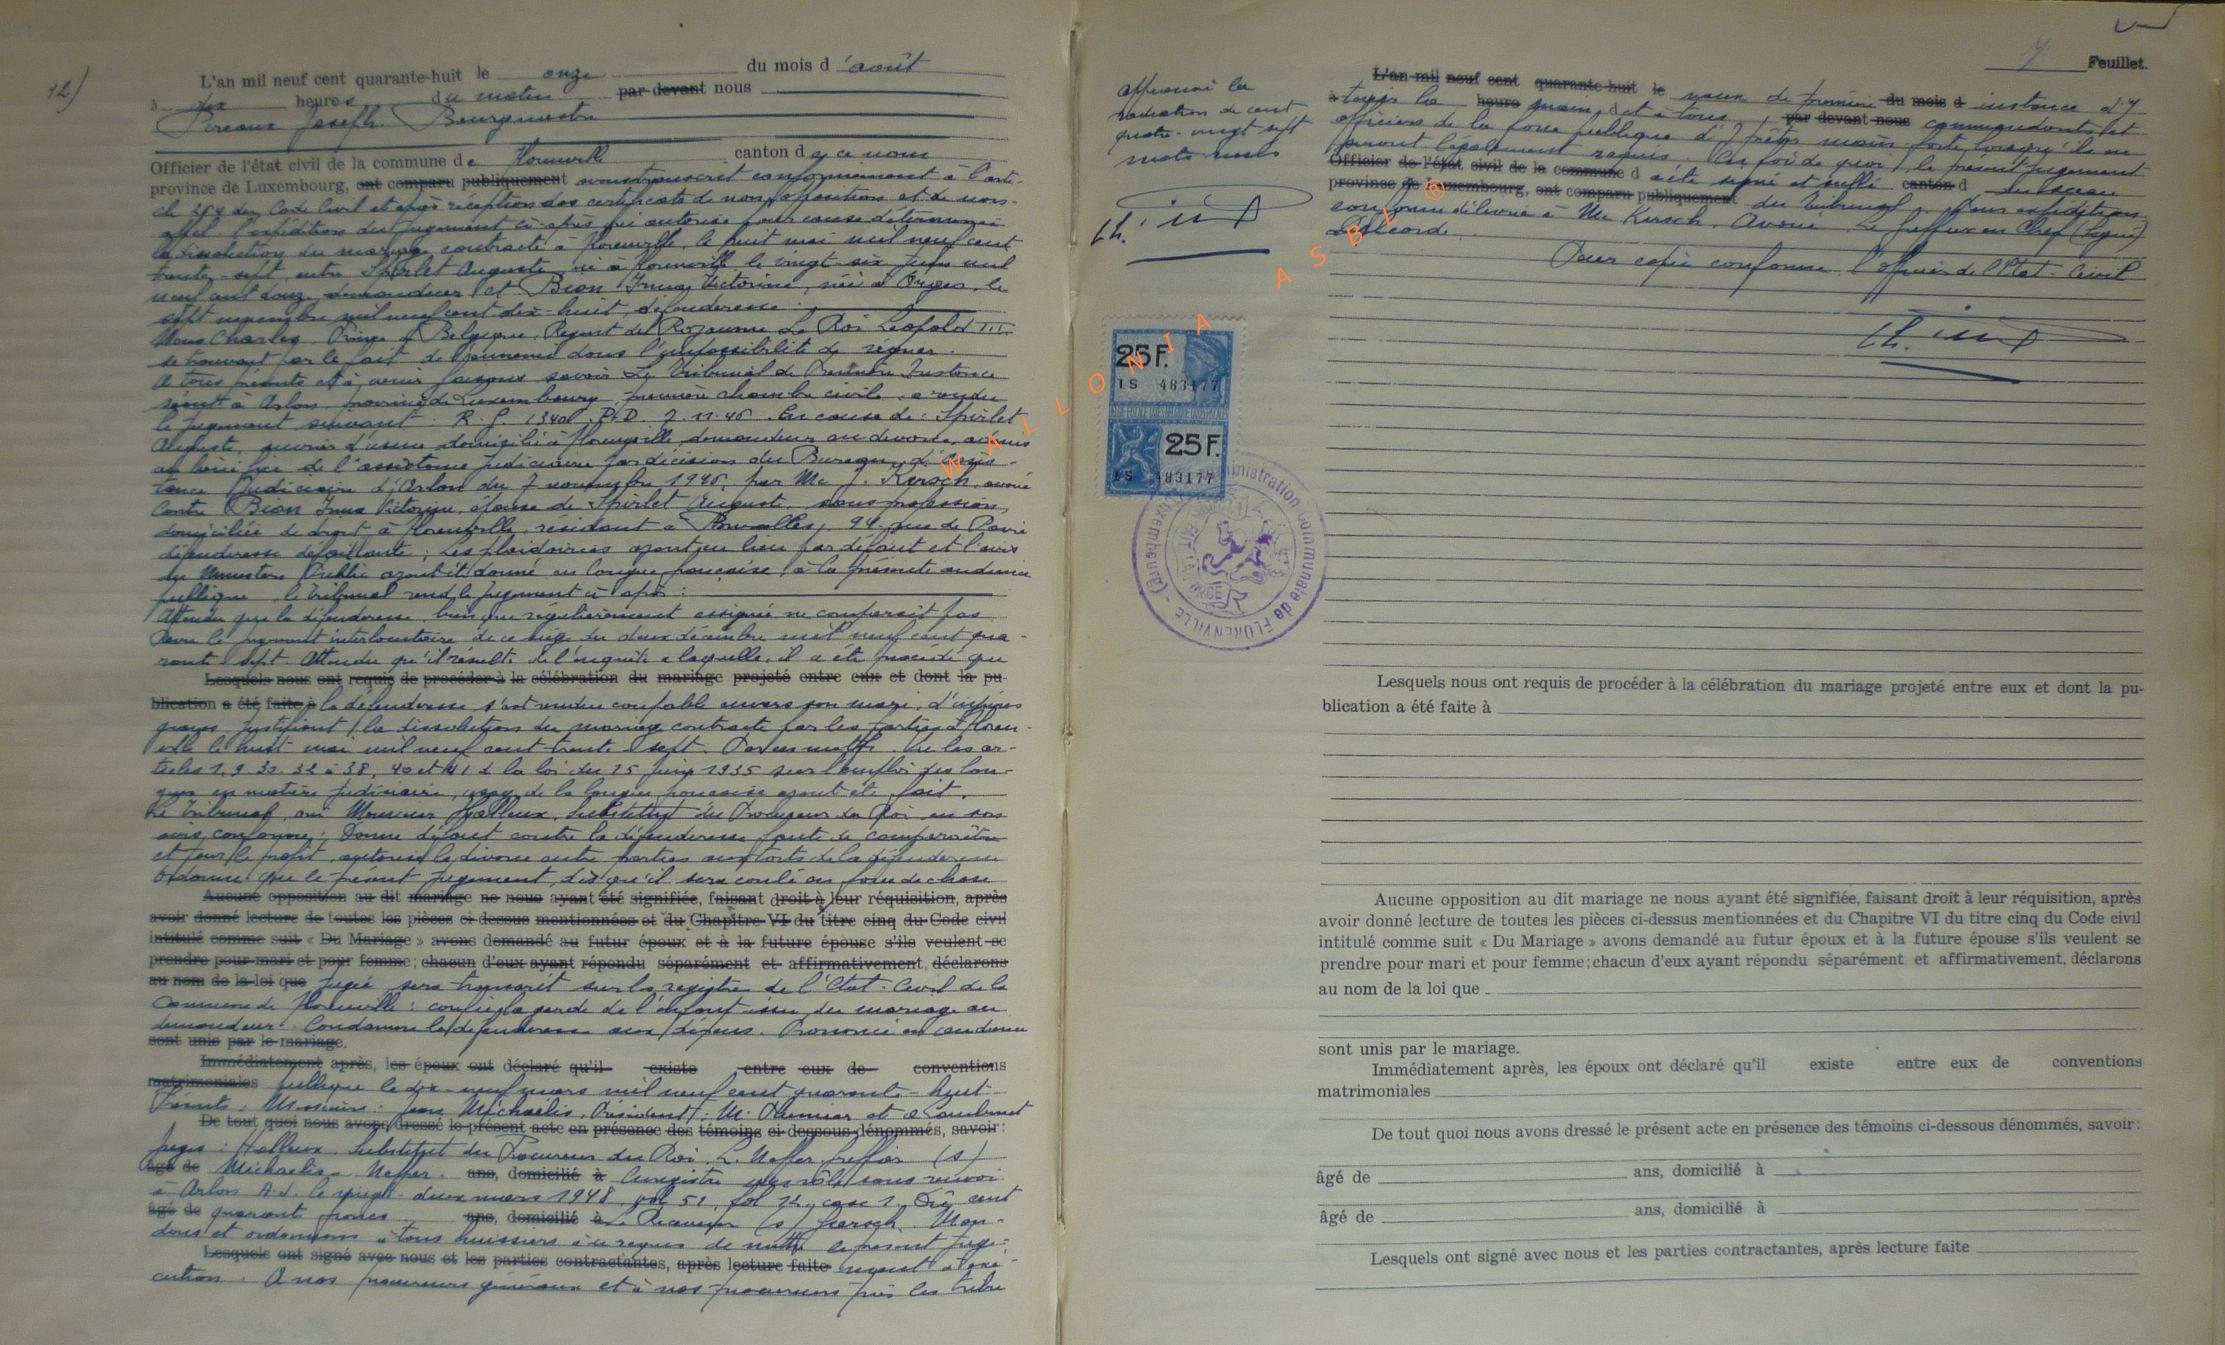 12)
L'an mil neuf cent quarante-huit le onze du mois d'août
à dix heures du matin par devant nous
Pireaux Joseph Bourgmestre
Officier de l'état civil de la commune de Florenville canton d y ce nom
province de Luxembourg, ont comparu publiquement avons transcrit conformément à l'arti-
cle 264 du Code Civil et après réception des certificats de non opposition et de non-
appel l'expédition du jugement ci-après qui autorise pour cause déterminée
la dissolution du mariage contracté à Florenville, le huit mai mil neuf cent
trente-sept, entre Spirlet Auguste, né à Florenville le vingt-six juin mil
neuf cent douze, demandeur et Bion Irma Victorine, née à Orgeo, le
sept novembre mil neuf cent dix-huit, défenderesse.
Nous Charles, Prince de Belgique, Régent du Royaume Le Roi Léopold III
se trouvant par le fait de l'ennemi dans l'impossibilité de régner.
A tous présents et à venir faisons savoir Le Tribunal de Première Instance
séant à Arlon, province de Luxembourg, première chambre civile a rendu
le jugement suivant : R. G. 1340 P.D. 7.11.46. En cause de : Spirlet
Auguste, ouvrier d'usine domicilié à Florenville, demandeur en divorce, admis
au bénéfice de l'assistance judiciaire par décision du Bureau d'assis-
tance Judiciaire d'Arlon du 7 novembre 1946, par Me J. Kersch, avoué
Contre Bion Irma Victorine, épouse de Spirlet Auguste, sans profession,
domiciliée de droit à Florenville, résidant à Bruxelles, 94 rue de Pavie
défenderesse défaillante ; Les plaidoiries ayant eu lieu par défaut et l'avis
du Ministère Public ayant été donné en langue française, à la présente audience
publique, le Tribunal rend le jugement ci après :
Attendu que la défenderesse, bien que régulièrement assignée ne comparaît pas
Revu le jugement interlocutoire de ce siège du deux décembre mil neuf cent qua-
rante sept. Attendu qu'il résulte de l'enquête à laquelle, il a été procédé que
Lesquels nous ont requis de procéder à la célébration du mariage projeté entre eux et dont la pu-
blication a été faite à la défenderesse s'est rendue coupable envers son mari, d'injures
graves justifiant la dissolution du mariage contracté par les parties à Floren-
ville le huit mai mil neuf cent trente sept. Par ces motifs. Vu les ar-
ticles 1, 9. 30. 32 à 38, 40 et 41 d la loi du 15 juin 1935 sur l'emploi des lan-
gues en matière judiciaire, usage de la langue française ayant été fait.
Le Tribunal, oui Monsieur Halleux, Substitut du Procureur du Roi en son
avis conforme : Donne défaut contre la défenderesse faute de comparaître
et pour le profit, autorise le divorce entre parties aux torts de la défenderesse
Ordonne que le présent jugement, dès qu'il sera coulé en force de chose
Aucune opposition au dit mariage ne nous ayant été signifiée, faisant droit à leur réquisition, après
avoir donné lecture de toutes les pièces ci-dessus mentionnées et du Chapitre VI du titre cinq du Code civil
intitulé comme suit « Du Mariage » avons demandé au futur époux et à la future épouse s'ils veulent se
prendre pour mari et pour femme; chacun d'eux ayant répondu séparément et affirmativement, déclarons
au nom de la loi que jugée sera transcrit sur les registres de l'Etat-Civil de la
commune de Florenville : confie la garde de l'enfant issu du mariage au
demandeur. Condamne la défenderesse aux dépens. Prononcé en audience
sont unis par le mariage.
Immédiatement après, les époux ont déclaré qu'il existe entre eux de conventions
matrimoniales publique le dix-neuf mars mil neuf cent quarante-huit
Présents : Messieurs : Jean Michaelis, Président ; M. et Lambinet
De tout quoi nous avons dressé le présent acte en présence des témoins ci-dessous dénommés, savoir:
Juges : Halleux. Substitut du Procureur du Roi. L. Neffer greffier (s)
âgé de Michaelis - Neffer. ans, domicilié à Enregistré sans renvoi
à Arlon A.J. le vingt-deux mars 1948, vol 51, fol 12, case 1. Dû cent
âgé de quarante francs ans, domicilié à Le Receveur (s) Man-
dons et ordonnons à tous huissiers à ce requis de mettre le présent juge-
Lesquels ont signé avec nous et les parties contractantes, après lecture faite ment à exé-
cution. A nos procureurs généraux et à nos procureurs près les tribu
Feuillet.
7
approuvé la
radiation de cent
quatre-vingt sept
mots nuls
L'an mil neuf cent quarante-huit le naux de première du mois d instance d'y
à tenir la heure main, d et à tous par devant nous commandants et
officiers de la force publique d'y prêter main-forte lorsqu'ils en
seront légalement requis. En foi de quoi, le présent jugement
Officier de l'état civil de la commune d a été signé et scellé canton d du sceau
province de Luxembourg, ont comparu publiquement du Tribunal. Pour expédition
conforme délivrée à Me Kersch. Avoué. Le Greffier en Chef (signé)
Pour copie conforme, l'officier de l'Etat-Civil
WALLONIA ASBL ®
25 F.
IS 483177
25 F.
IS 483177
Administration Communale de FLORENVILLE (Luxembourg)
Lesquels nous ont requis de procéder à la célébration du mariage projeté entre eux et dont la pu-
blication a été faite à
Aucune opposition au dit mariage ne nous ayant été signifiée, faisant droit à leur réquisition, après
avoir donné lecture de toutes les pièces ci-dessus mentionnées et du Chapitre VI du titre cinq du Code civil
intitulé comme suit « Du Mariage » avons demandé au futur époux et à la future épouse s'ils veulent se
prendre pour mari et pour femme; chacun d'eux ayant répondu séparément et affirmativement, déclarons
au nom de la loi que
sont unis par le mariage.
Immédiatement après, les époux ont déclaré qu'il existe entre eux de conventions
matrimoniales
De tout quoi nous avons dressé le présent acte en présence des témoins ci-dessous dénommés, savoir:
âgé de ans, domicilié à
âgé de ans, domicilié à
Lesquels ont signé avec nous et les parties contractantes, après lecture faite